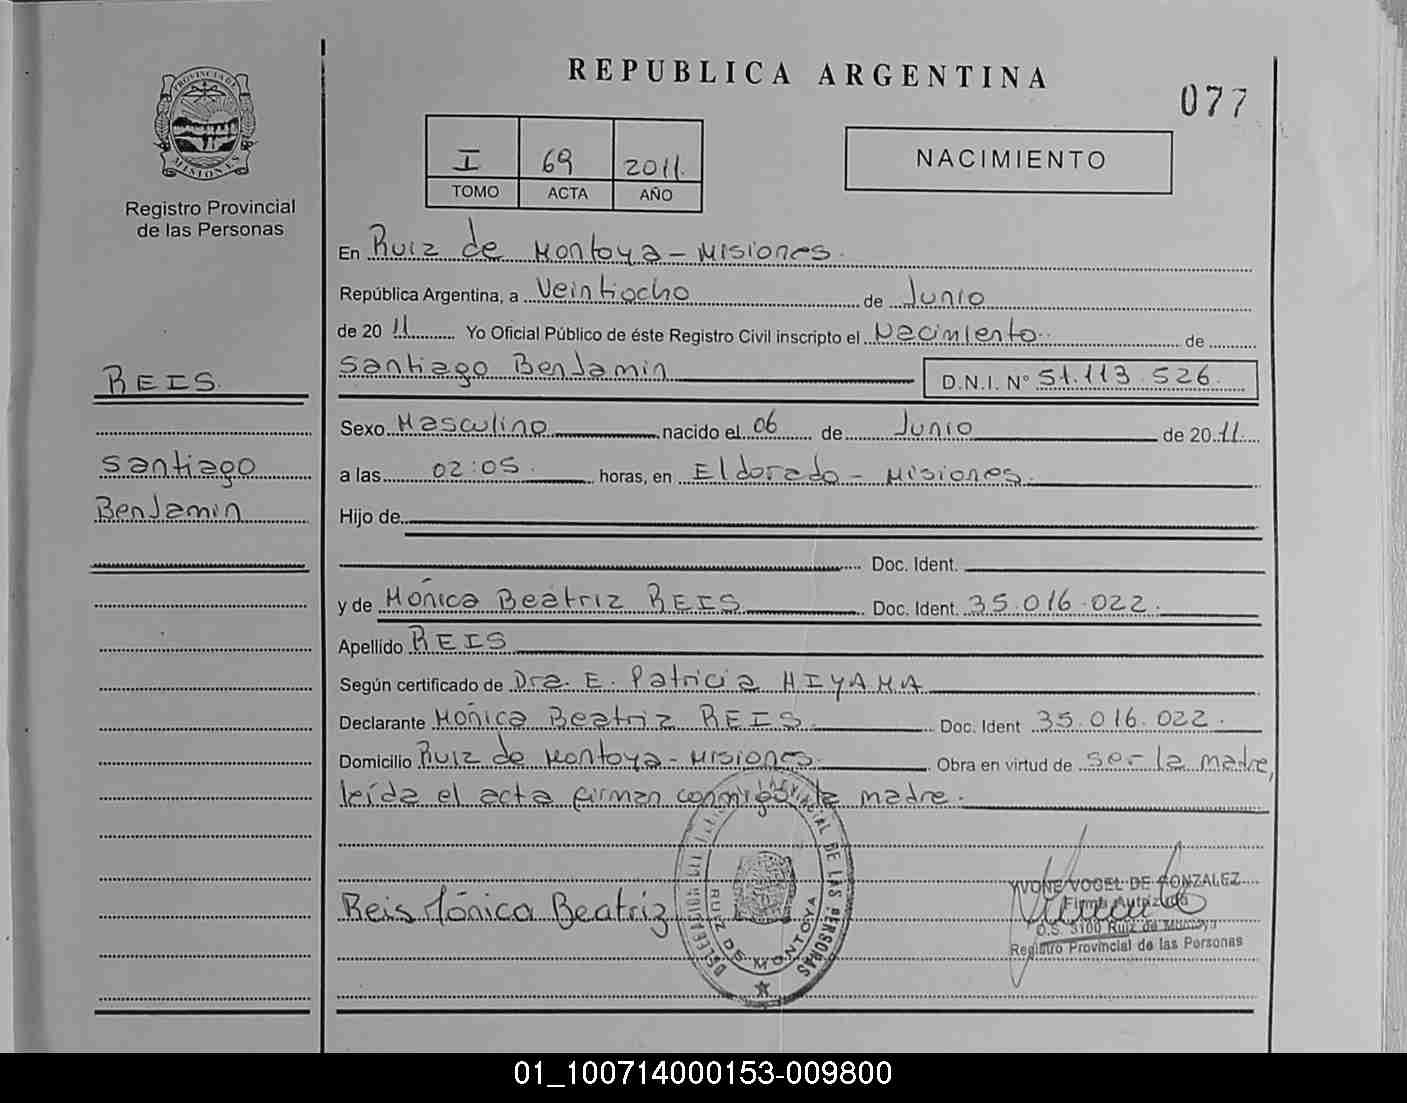 REPUBLICA ARGENTINA
077
PROVINCIA DE
MISIONES
Registro Provincial
de las Personas
I 69 2011.
TOMO ACTA AÑO
NACIMIENTO
En Ruiz de Montoya - Misiones.
República Argentina, a Veintiocho de Junio
de 2011 Yo Oficial Público de éste Registro Civil inscripto el Nacimiento de
Santiago Benjamin D.N.I. N° 51.113.526.
REIS.
Santiago
Benjamin
Sexo Masculino nacido el 06 de Junio de 2011
a las 02:05. horas, en Eldorado - Misiones.
Hijo de
Doc. Ident.
y de Mónica Beatriz REIS Doc. Ident. 35.016.022.
Apellido REIS
Según certificado de Dra. E. Patricia HIYAMA
Declarante Mónica Beatriz REIS. Doc. Ident 35.016.022.
Domicilio Ruiz de Montoya - Misiones. Obra en virtud de ser la madre,
leída el acta firman conmigo la madre.
Reis Mónica Beatriz
DELEGACION DEL PROVINCIAL DE LAS PERSONAS
RUIZ DE MONTOYA
YVONE VOGEL DE GONZALEZ
Firma Autorizada
O.S. 3100 Ruiz de Montoya
Registro Provincial de las Personas
01_100714000153-009800